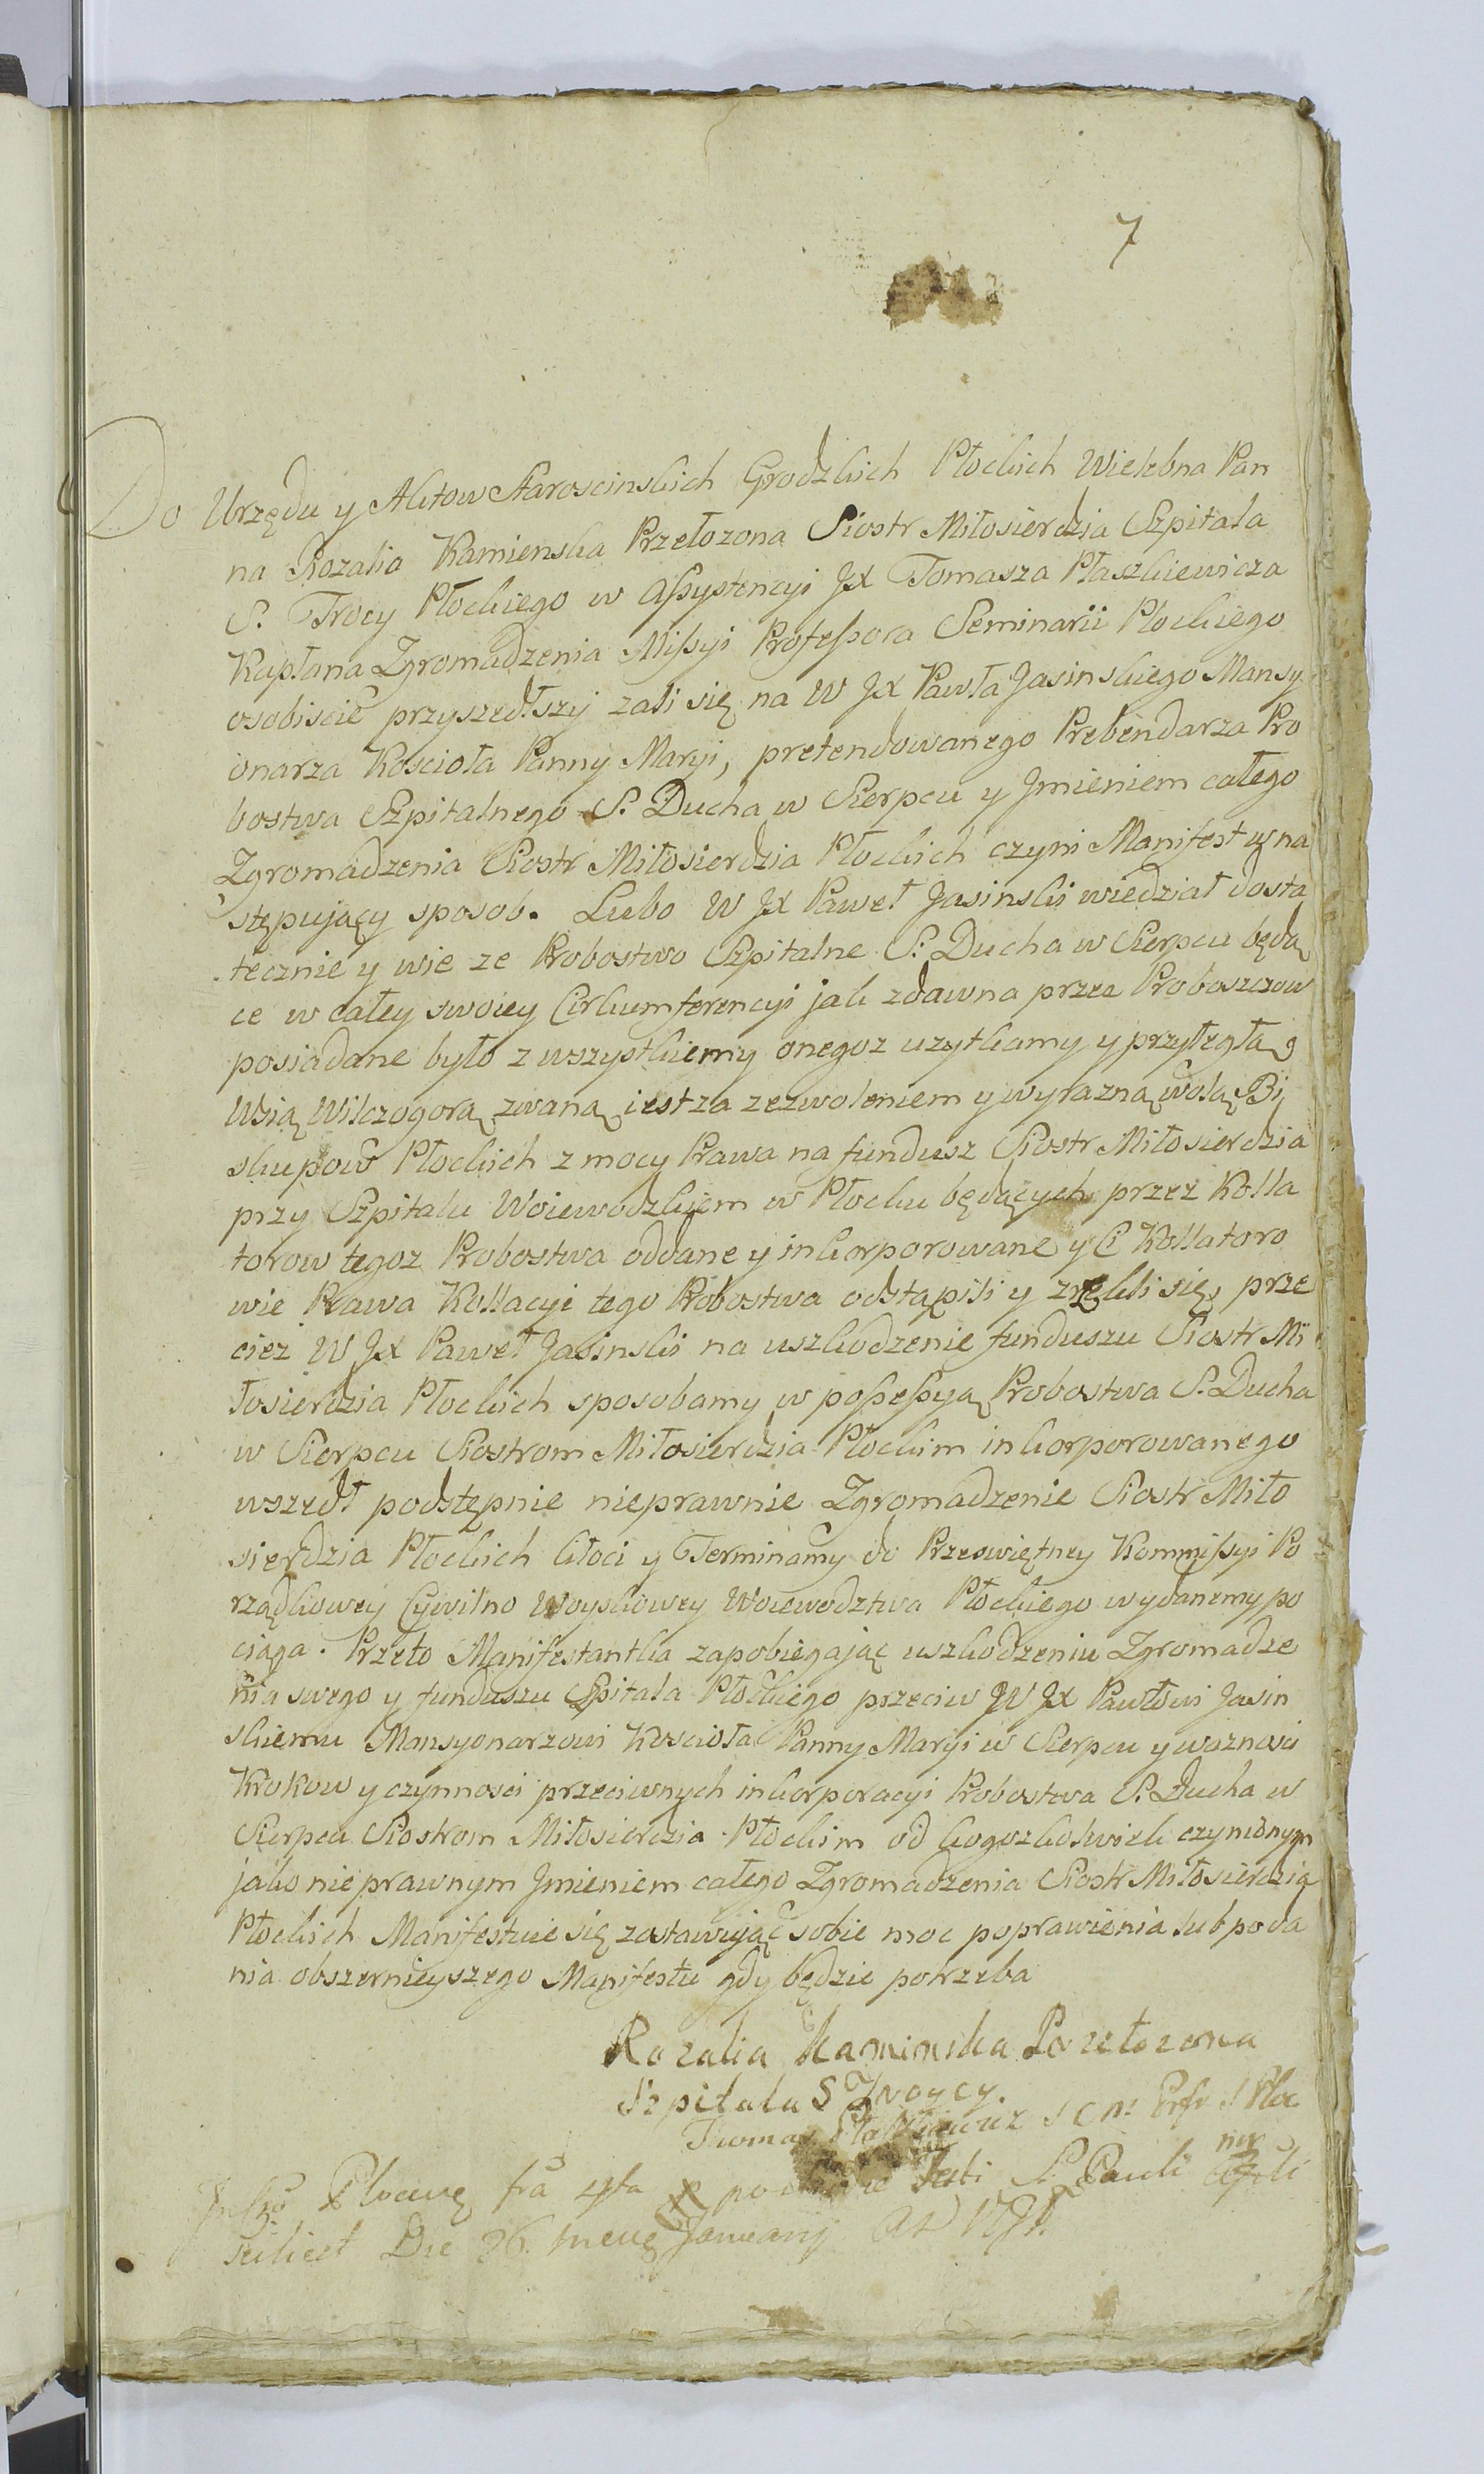 7
Do Urzędu y Aktow Staroscinskich Grodzkich Płockich Wielebna Pan
na Rozalia Kamienska Przełozona Siostr Miłosierdzia Szpitala
S. Trocy Płockiego w Assystencyi JX Tomasza Płaszkiewicza
Kapłana Zgromadzenia Missyi Professora Seminarii Płockiego
osobiscie przyszedłszy zali się na W JX Pawła Jasinskiego Mansy
onarza Koscioła Panny Maryi, pretendowanego Prebendarza Pro
bostwa Szpitalnego S. Ducha w Sierpcu y Jmieniem całego
Zgromadzenia Siostr Miłosierdzia Płockich czyni Manifest w na
stępujący sposob. Lubo W JX Paweł Jasinski wiedział dosta
tecznie y wie ze Probostwo Szpitalne S. Ducha w Sierpcu będą
ce w całey swoiey Cirkumferencyi jak zdawna przez Proboszczow
posiadane było z wszystkiemy onegoz uzytkamy y przyległą
Wsią Wilczogorą zwaną iest za zezwoleniem y wyrazną wolą Bi
skupow Płockich z mocy Prawa na fundusz Siostr Miłosierdzia
przy Szpitalu Woiewodzkiem w Płocku będących przez Kolla
torow tegoz Probostwa oddane y inkorporowane y Ci Kollatoro
wie Prawa Kollacyi tego Probostwa odstąpili y zrzekli się, prze
ciez W JX Paweł Jasinski na uszkodzenie funduszu Siostr Mi
łosierdzia Płockich sposobamy w possessyą Probostwa S. Ducha
w Sierpcu Siostrom Miłosierdzia Płockim inkorporowanego
wszedł podstępnie nieprawnie Zgromadzenie Siostr Miło
sierdzia Płockich kłoci y Terminamy do Przeswiętney Kommissyi Po
rządkowey Cywilno Woyskowey Woiewodztwa Płockiego wydanemy po
ciąga. Przeto Manifestantka zapobiegając uszkodzeniu Zgromadze
nia swego y funduszu Szpitala Płockiego przeciw W JX Pawłowi Jasin
skiemu Mansyonarzowi Koscioła Panny Maryi w Sierpcu y waznosci
Krokow y czynnosci przeciwnych inkorporacyi Probostwa S. Ducha w
Sierpcu Siostrom Miłosierdzia Płockim od kogozkolwiek czynionym
jako nieprawnym Jmieniem całego Zgromadzenia Siostr Miłosierdzia
Płockich Manifestuie się zostawując sobie moc poprawienia lub poda
nia obszernieyszego Manifestu gdy będzie potrzeba
Rozalia Kaminska Przełozona
Szpitala S Troycy.
Thomas Płaszkiewicz
Plocen fa 4ta Festi S. Pauli
scilicet Die 26. mens Januarij